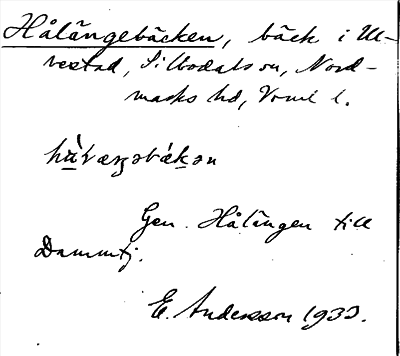 Hålängebäcken, bäck i Ul-
vestad, Silbodals sn, Nord-
marks hd, Vrml l.
Gen. Hålängen till
Dammtj.
E. Andersson 1933.